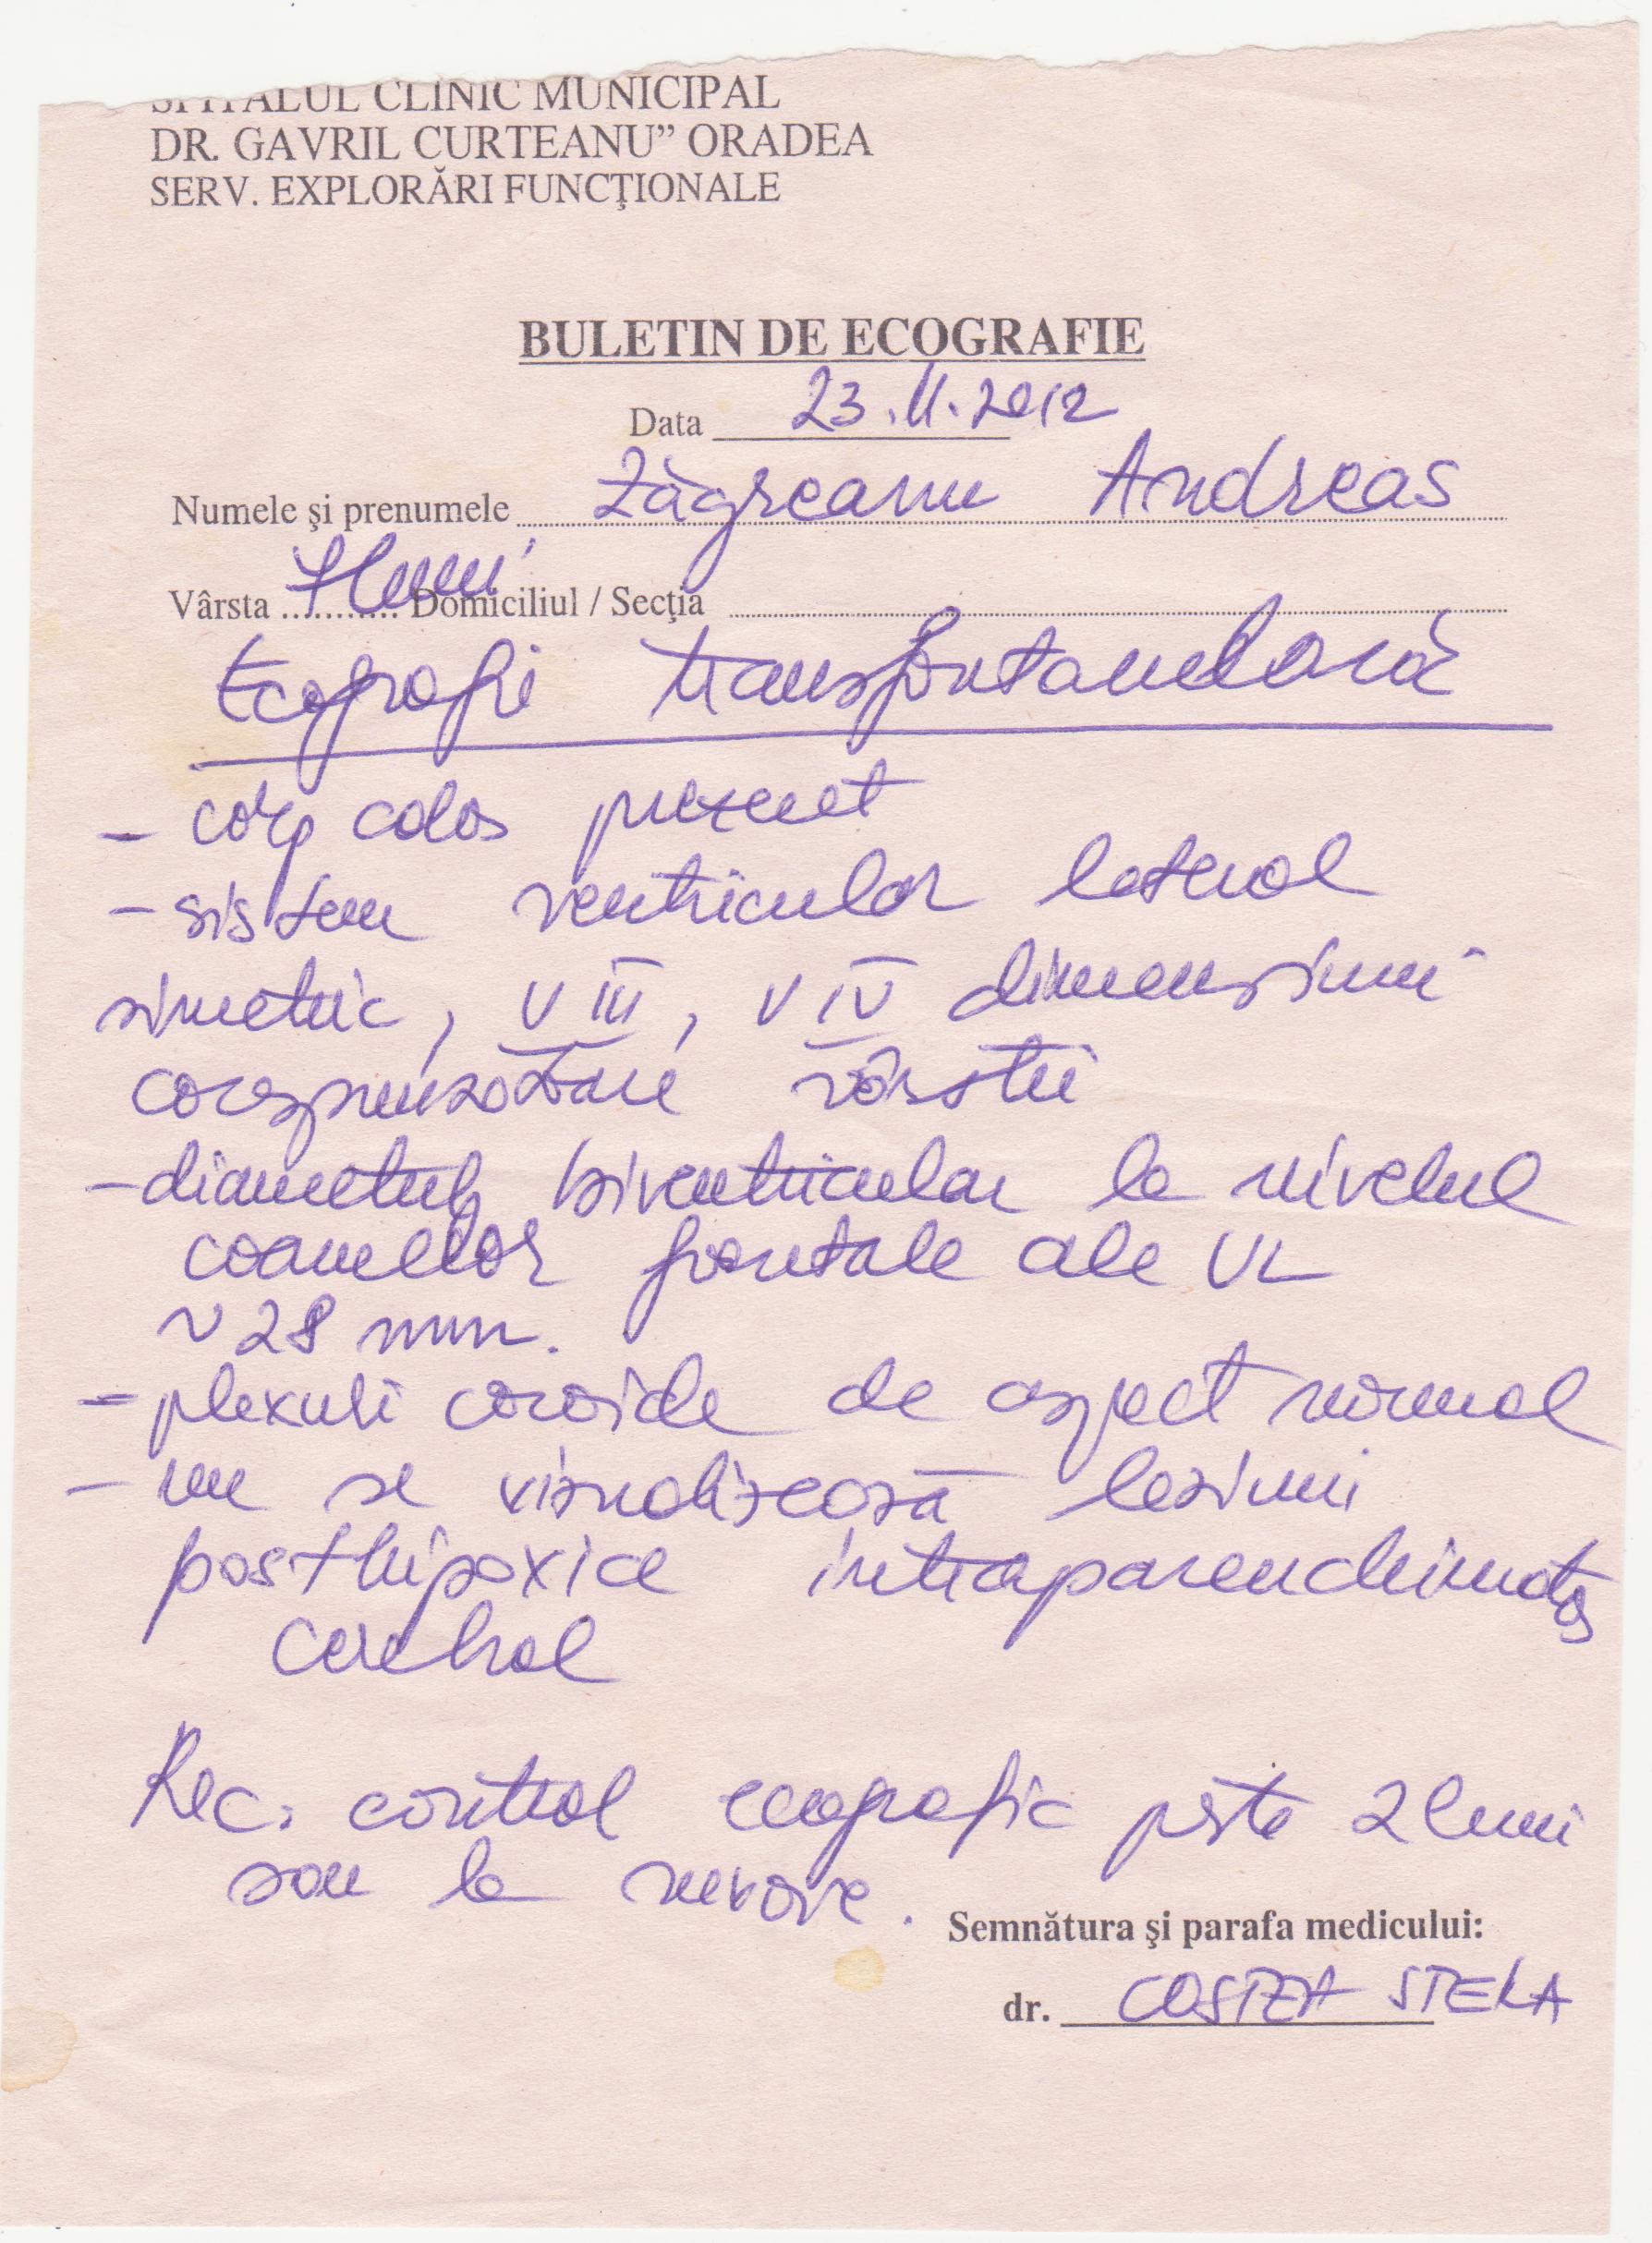 SPITALUL CLINIC MUNICIPAL
DR. GAVRIL CURTEANU” ORADEA
SERV. EXPLORĂRI FUNCŢIONALE
BULETIN DE ECOGRAFIE
Data 23.11.2012
Numele şi prenumele Zăgreanu Andreas
Vârsta ............ luni Domiciliul / Secţia
Ecografie transfontanelară
- corp calos prezent
- sistem ventricular lateral
simetric, V III, V IV dimensiuni
corespunzătoare vârstei
- diametrul biventricular la nivelul
coarnelor frontale ale VL
~ 28 mm.
- plexuri coroide de aspect normal
- nu se vizualizează leziuni
posthipoxice intraparenchimatos
cerebral
Rec. control ecografic peste 2 luni
sau la nevoie.
Semnătura şi parafa medicului:
dr. COSTEA STELA